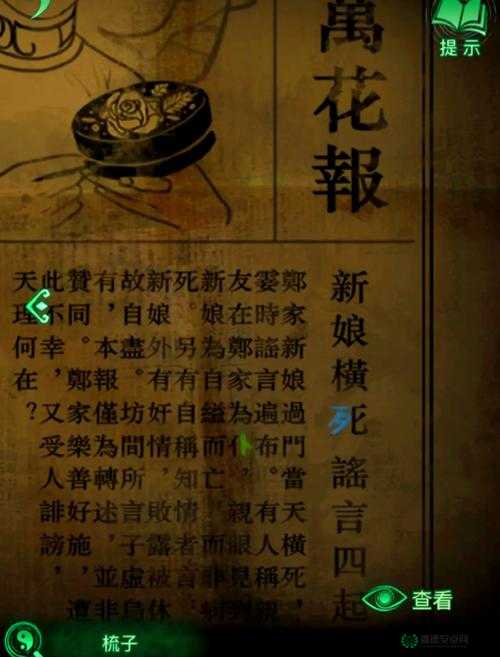 提示
萬花報
新娘橫死 謠言四起
鄭家新娘過門當天橫死，
霎時謠言遍布。有人稱親
友在鄭家為仆，親眼見到
新娘為自縊而亡，而非
死。另有自稱知情者言：
新娘外有奸情，敗露被休
故自盡。坊間所言子虛烏
有，本報僅為轉述，並非
贊同。鄭家樂善好施，遭
此不幸，又受人誹謗，
天理何在？
查看
梳子